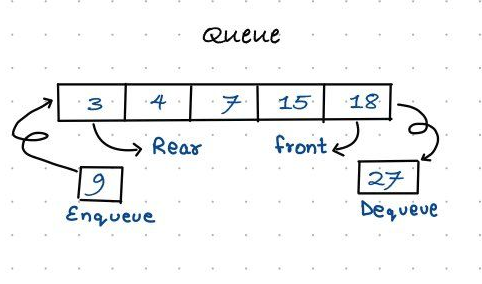 Queue
3 4 7 15 18
Rear front
9 27
Enqueue Dequeue